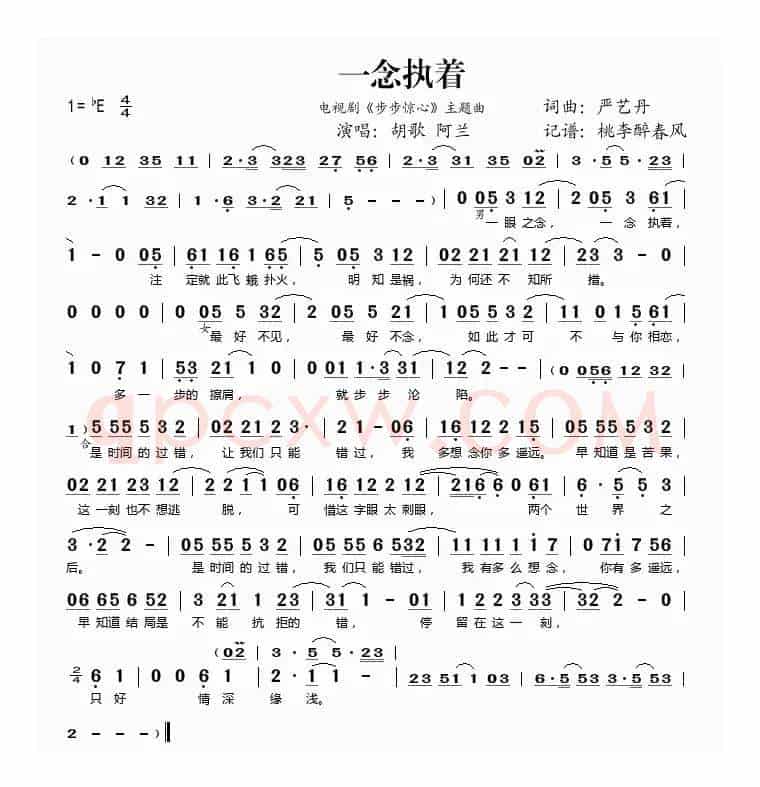 一念执着
1=♭E 4/4 电视剧《步步惊心》主题曲 词曲：严艺丹
演唱：胡歌 阿兰 记谱：桃李醉春风
(0 12 35 11 | 2·3 323 27 56 | 2·3 31 35 02 | 3·55·23
2·1 1 32 | 1·6 3·2 21 | 5 - - -) | 0 05 3 12 | 2 05 3 61 |
男 一眼之念， 一念执着，
1 - 0 05 | 61 16 1 65 | 5 05 3 12 | 02 21 21 12 | 23 3 - 0 |
注 定就此飞蛾扑火， 明知是祸， 为何还不知所 措。
0 0 0 0 | 0 05 5 32 | 2 05 5 21 | 02 05 5 32 | 11 01 5 61 |
女 最好不见， 最好不念， 如此才可 不与你相恋，
1 0 7 1 | 53 23 21 0 | 0 001 1·3 31 | 12 2 - - | (0 056 12 32
多一步的擦肩， 就步步沦陷。
1) 5 55 5 3 2 | 02 21 2 3 | 2 1 - 06 | 16 12 15 5 | 5 55 5 3 2 |
合 是时间的过错， 让我们只能 错过， 我 多想念你多遥远。 早知道是苦果，
02 21 23 12 | 2 21 1 06 | 16 12 12 12 | 216 6 0 61 | 6·55 3 |
这一刻也不想逃 脱， 可 惜这字眼太刺眼， 两个 世界之
3·2 2 - | 05 55 5 3 2 | 05 55 6 532 | 11 11 1 1 7 | 0 71 7 56 |
后。 是时间的过错， 我们只能错过， 我有多么想念， 你有多遥远，
06 65 6 52 | 3 21 1 23 | 31 1 - 01 | 1 22 23 33 | 32 2 - 0 |
早知道结局是 不能抗拒的 错， 停 留在这一刻，
(02 | 3·55·23
2/4 6 1 | 0 0 6 1 | 2·1 1 - | 23 51 1 03 | 5·12 23 | 6·5 53 23 |
只好 情深 缘浅。
2 - - -)‖
qpcxw.COM